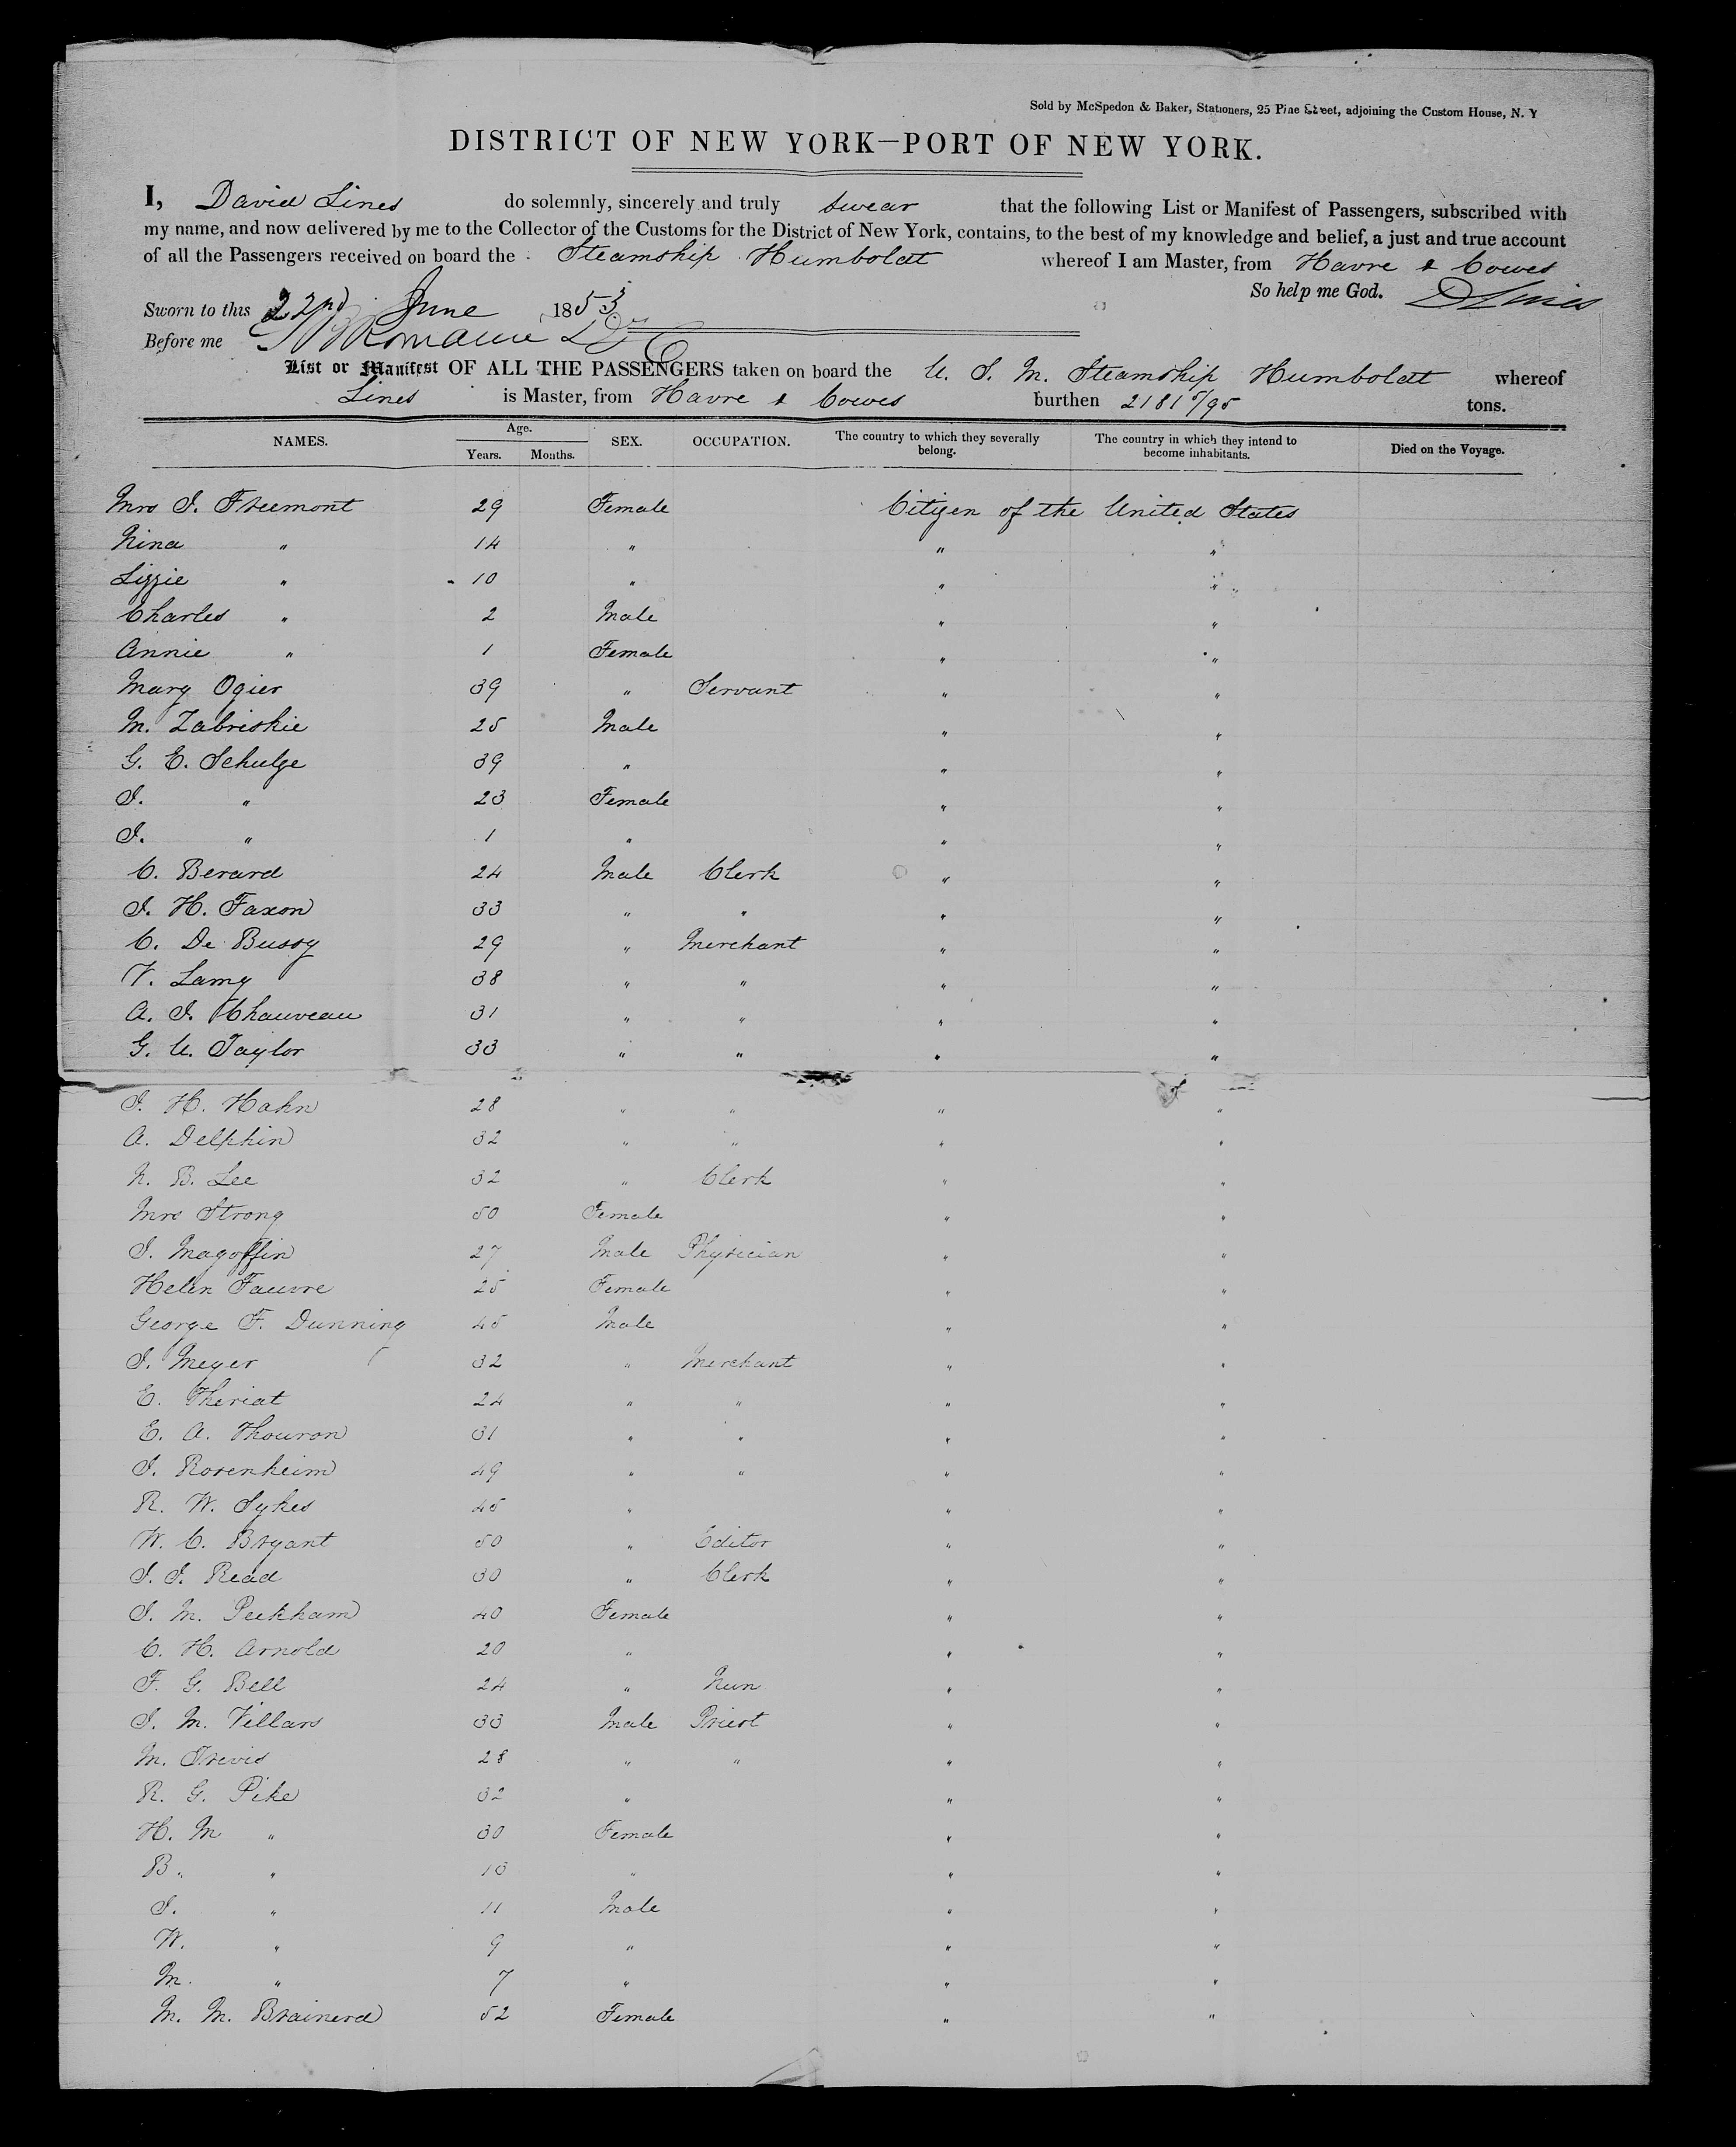 Sold by McSpedon & Baker, Stationers, 25 Pine Street, adjoining the Custom House, N. Y
DISTRICT OF NEW YORK—PORT OF NEW YORK.
I, David Lines do solemnly, sincerely and truly swear that the following List or Manifest of Passengers, subscribed with
my name, and now delivered by me to the Collector of the Customs for the District of New York, contains, to the best of my knowledge and belief, a just and true account
of all the Passengers received on board the Steamship Humboldt whereof I am Master, from Havre & Cowes
So help me God. D Lines
Sworn to this 22nd June 1853
Before me Romaine
List or Manifest OF ALL THE PASSENGERS taken on board the U. S. M. Steamship Humboldt whereof
Lines is Master, from Havre & Cowes burthen 2181 5/95 tons.
NAMES. Age. Years. Months. SEX. OCCUPATION. The country to which they severally belong. The country in which they intend to become inhabitants. Died on the Voyage.
Mrs J. Freemont 29 Female Citizen of the United States
Nina " 14 " " "
Lizzie " 10 " " "
Charles " 2 Male " "
Annie " 1 Female " "
Mary Ogier 39 " Servant " "
M. Zabriskie 25 Male " "
G. E. Schulze 39 " " "
J. " 23 Female " "
J. " 1 " " "
C. Berard 24 Male Clerk " "
J. H. Faxon 33 " " " "
C. De Bussy 29 " Merchant " "
V. Lamy 38 " " " "
A. J. Chauveau 31 " " " "
G. U. Taylor 33 " " " "
J. H. Hahn 28 " " " "
A. Delphin 32 " " " "
N. B. Lee 32 " Clerk " "
Mrs Strong 50 Female " "
J. Magoffin 27 Male Physician " "
Helen Fauvre 25 Female " "
George F. Dunning 45 Male " "
J. Meyer 32 " Merchant " "
E. Theriat 24 " " " "
E. A. Thouron 31 " " " "
J. Rosenheim 49 " " " "
R. W. Sykes 45 " " "
W. C. Bryant 50 " Editor " "
J. J. Read 30 " Clerk " "
J. M. Peckham 40 Female " "
C. H. Arnold 20 " " "
F. G. Bell 24 " Nun " "
J. M. Villars 33 Male Priest " "
M. Trevis 28 " " " "
R. G. Pike 32 " " "
H. M " 30 Female " "
B. " 13 " " "
J. " 11 Male " "
W. " 9 " " "
M. " 7 " " "
M. M. Brainerd 52 Female " "